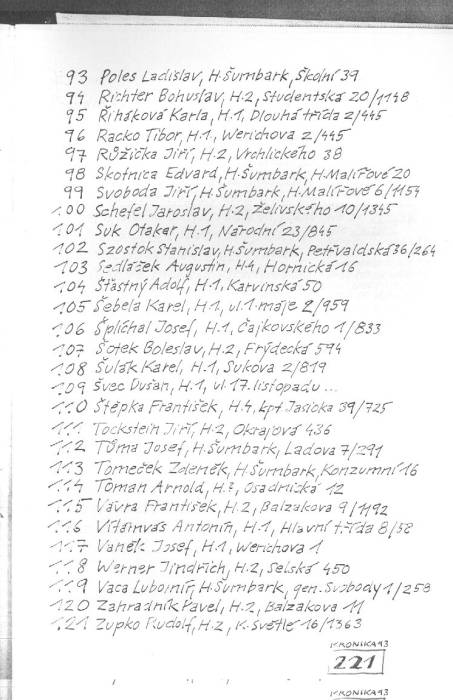 93 Poles Ladislav, H.Šumbark, Školní 39
94 Richter Bohuslav, H.2, Studentská 20/1148
95 Řiháková Karla, H.1, Dlouhá třída 2/445
96 Racko Tibor, H.1, Werichova 2/445
97 Růžička Jiří, H.2, Vrchlického 38
98 Skotnica Edvard, H.Šumbark, H.Malířové 20
99 Svoboda Jiří, H.Šumbark, H.Malířové 6/1154
100 Schefel Jaroslav, H.2, Želivského 10/1345
101 Suk Otakar, H.1, Národní 23/845
102 Szostok Stanislav, H.Šumbark, Petřvaldská 36/264
103 Sedláček Augustin, H.4, Hornická 16
104 Šťastný Adolf, H.1, Karvinská 50
105 Šebela Karel, H.1, ul.1.máje 2/959
106 Šplíchal Josef, H.1, Čajkovského 1/833
107 Šotek Boleslav, H.2, Frýdecká 594
108 Šulák Karel, H.1, Sukova 2/819
109 Švec Dušan, H.1, ul.17.listopadu ...
110 Štěpka František, H.4, kpt Jasioka 39/725
111 Tockstein Jiří, H.2, Okrajová 436
112 Tůma Josef, H.Šumbark, Ladova 7/291
113 Tomeček Zdeněk, H.Šumbark, Konzumní 16
114 Toman Arnold, H.?, Osadnická 12
115 Vávra František, H.2, Balzakova 9/1192
116 Vitáinvás Antonín, H.1, Hlavní třída 8/58
117 Vaněk Josef, H.1, Werichova 1
118 Werner Jindřich, H.2, Selská 450
119 Vaca Lubomír, H.Šumbark, gen.Svobody 1/258
120 Zahradník Pavel, H.2, Balzakova 11
121 Zupko Rudolf, H.2, K.Světlé 16/1363
KRONIKA 93
221
KRONIKA 93